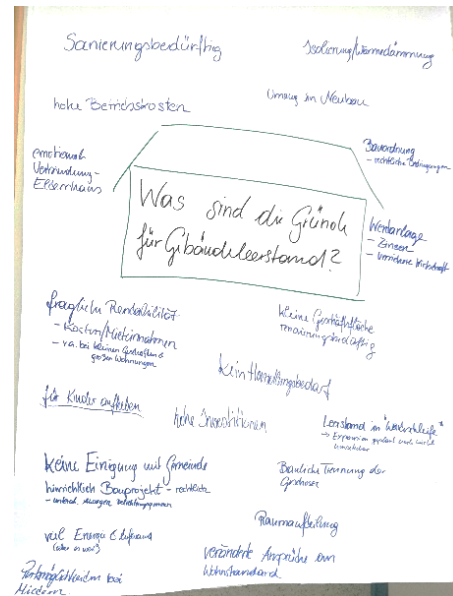 Sanierungsbedürftig
Isolierung/Wärmedämmung
hohe Betriebskosten
Umzug in Neubau
emotionale
Verbindung-
Elternhaus
Bauordnung
- rechtliche Bedingungen
Was sind die Gründe
für Gebäudeleerstand?
Wertanlage
- Zinsen
fragliche Rentabilität
- Kosten/Mieteinnahmen
- v.a. bei kleinen
großen Wohnungen
kleine Geschäftsfläche
sanierungsbedürftig
kein Handlungsbedarf
für Kinder aufheben
hohe Investitionen
Leerstand in "Warteschleife"
keine Einigung mit Gemeinde
hinsichtlich Bauprojekt - rechtlich
Bauliche Trennung der
Geschosse
Raumaufteilung
viel Energie
veränderte Ansprüche an
Wohnstandard
bei
Mietern